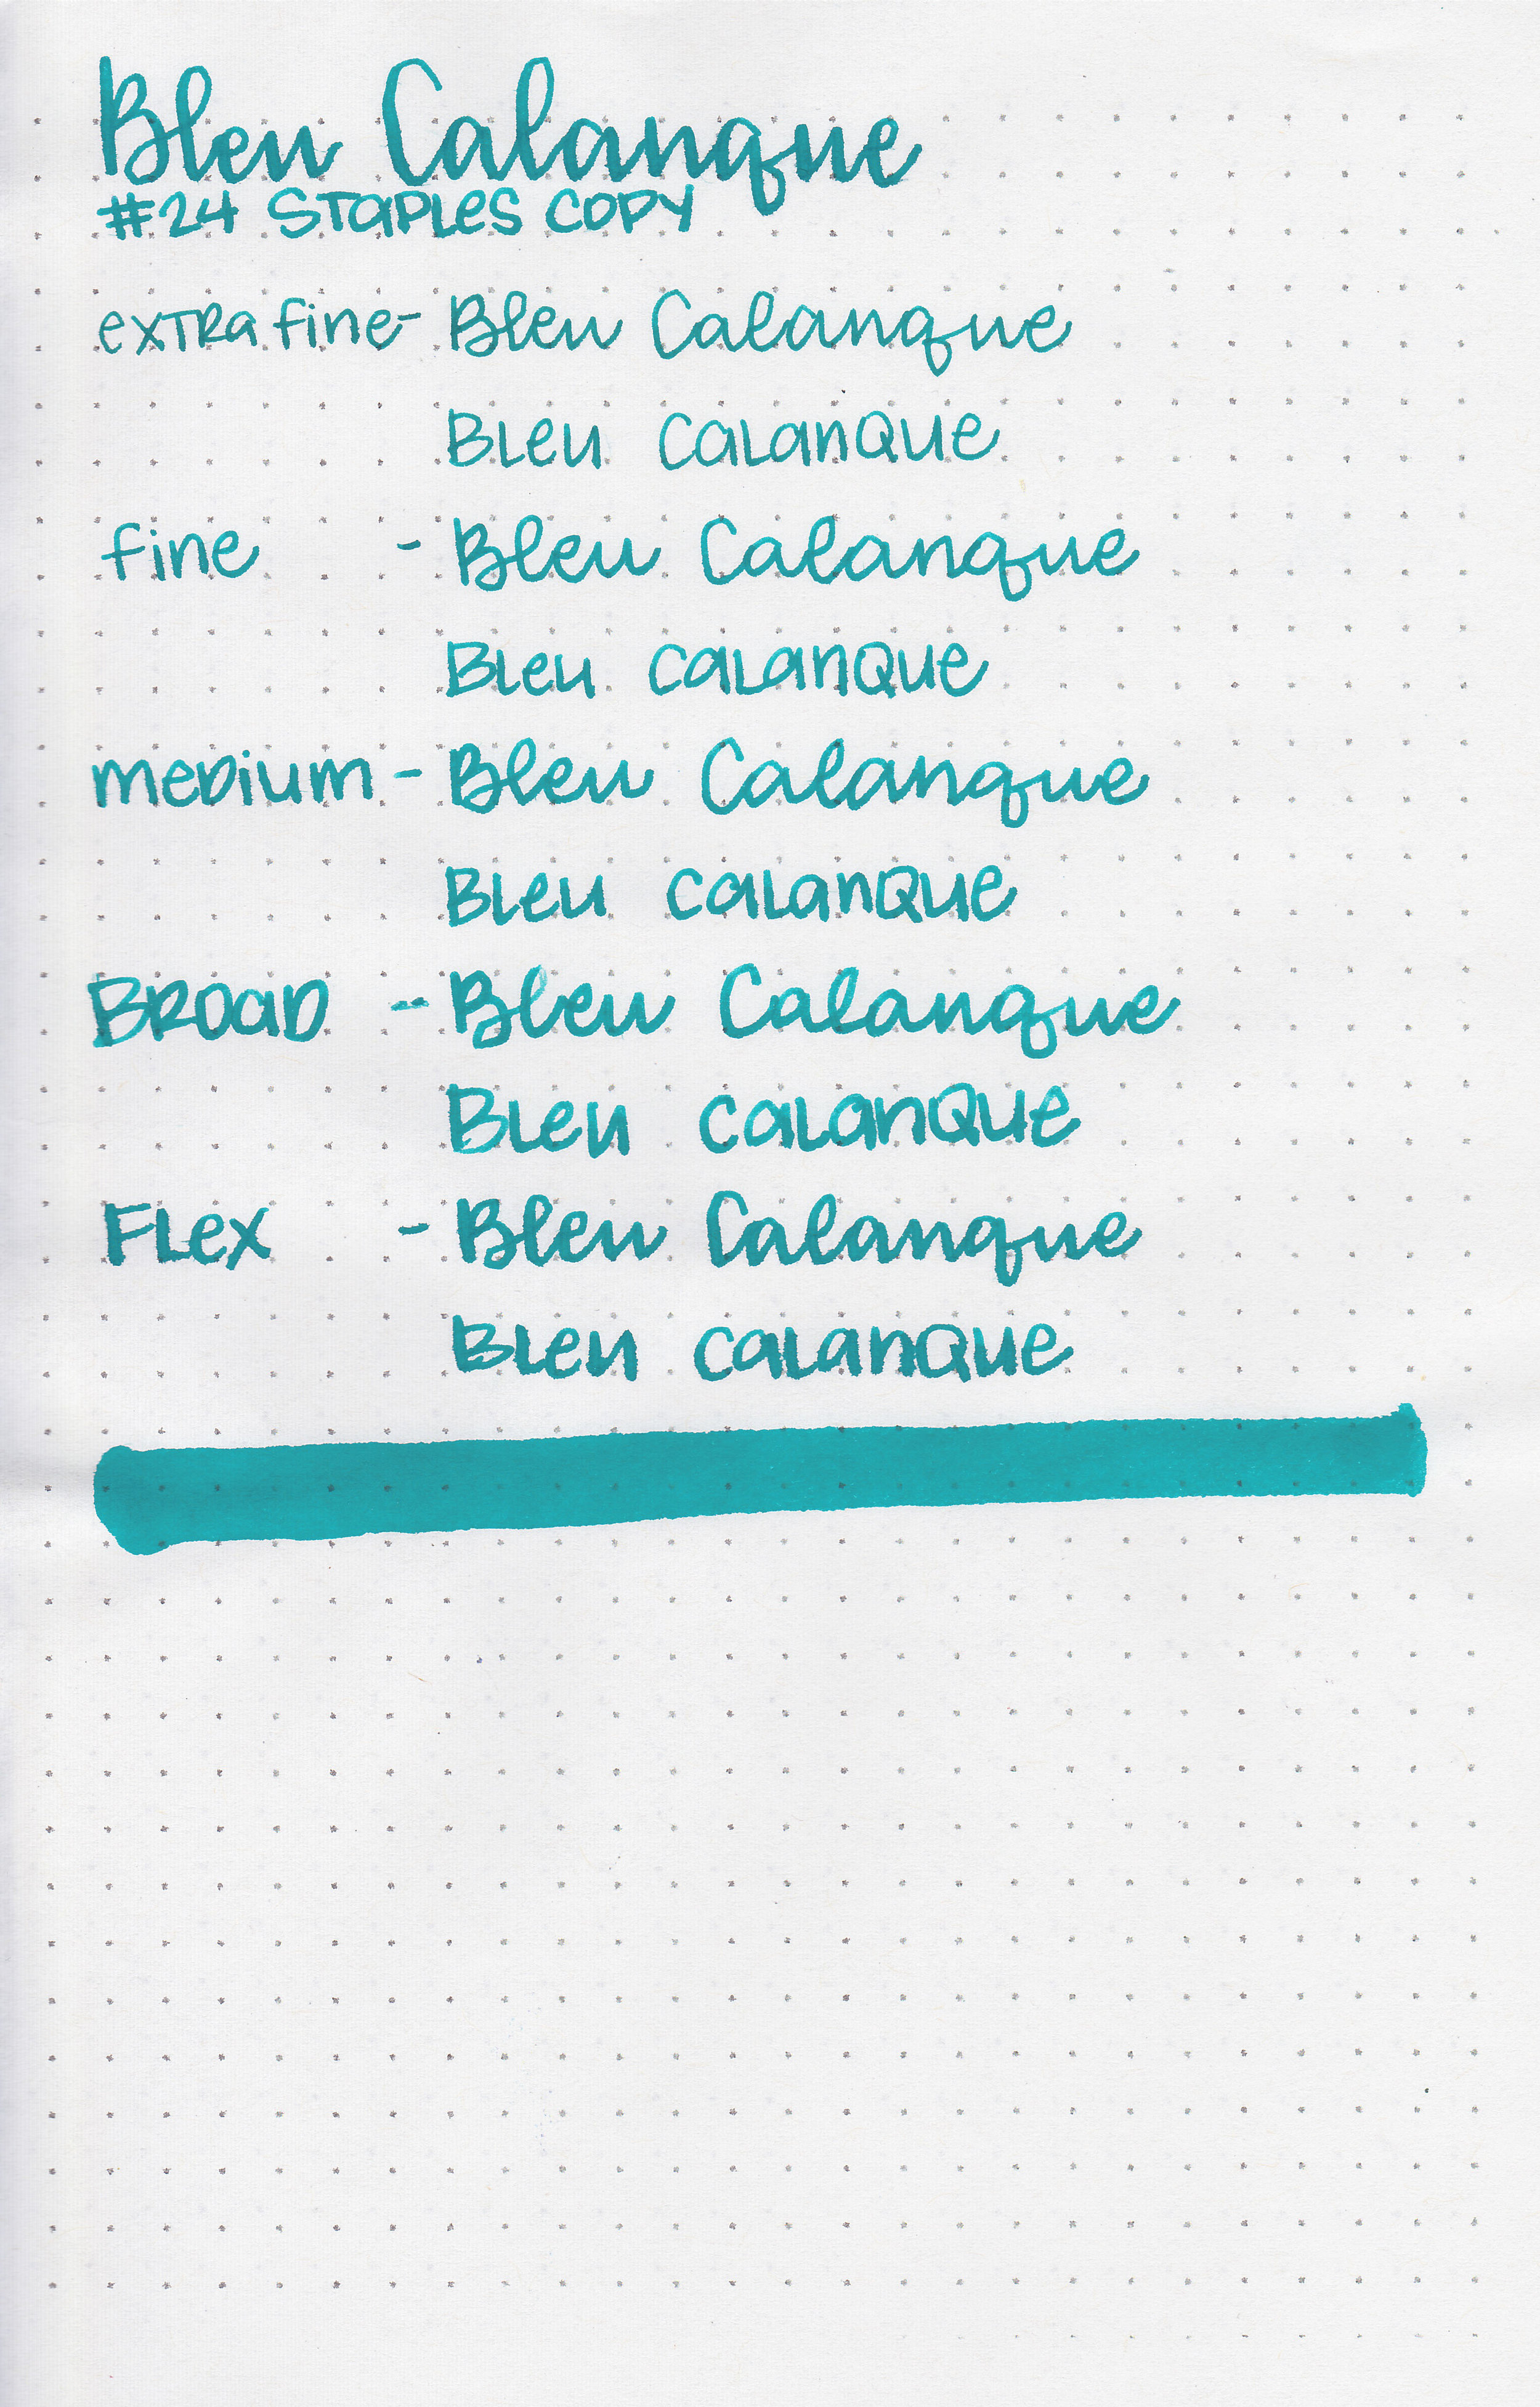 Bleu Calanque
#24 STAPLES COPY
exTRa fine- Bleu Calanque
BLeu CaLanQue
fine - Bleu Calanque
BLeu CaLanQue
meDium - Bleu Calanque
BLeu CaLanQue
BROaD -- Bleu Calanque
BLeu CaLanQue
FLex - Bleu Calanque
BLeu CaLanQue